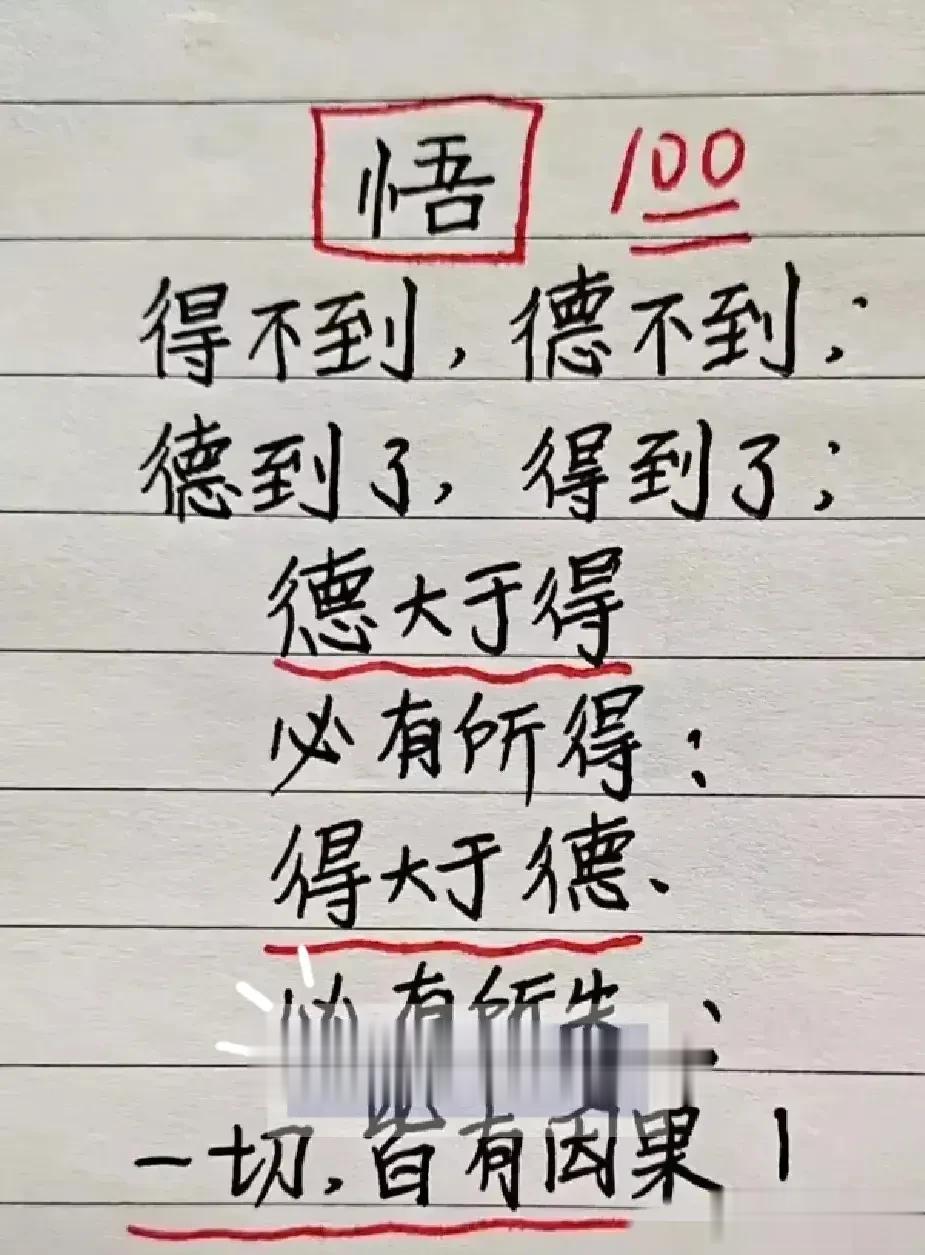 悟 100
得不到，德不到；
德到了，得到了；
德大于得
必有所得；
得大于德、
必有所失；
一切，皆有因果！